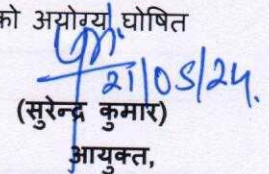 को अयोग्य घोषित
21/05/24.
(सुरेन्द्र कुमार)
आयुक्त,